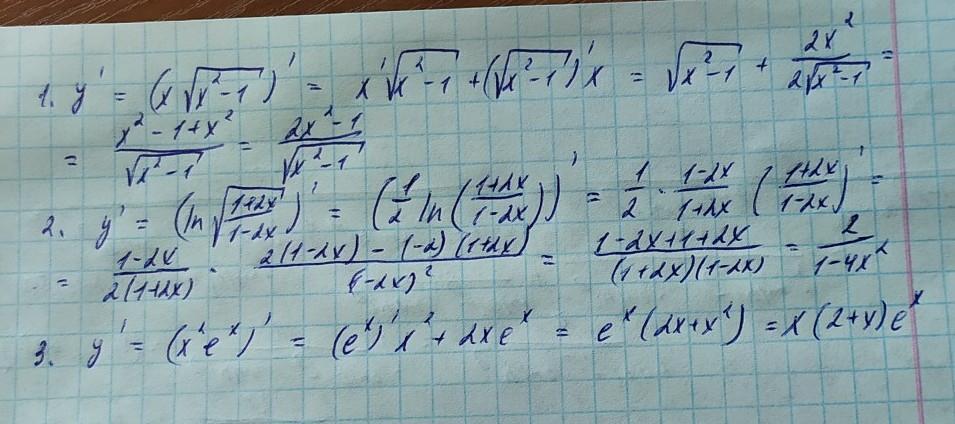 1. y' = (x√(x²-1))' = x'√(x²-1) + (√(x²-1))'x = √(x²-1) + 2x²/(2√(x²-1)) =
= (x²-1+x²)/√(x²-1) = (2x²-1)/√(x²-1)
2. y' = (ln√((1+2x)/(1-2x)))' = (1/2 ln((1+2x)/(1-2x)))' = 1/2 · (1-2x)/(1+2x) ((1+2x)/(1-2x))' =
= (1-2x)/(2(1+2x)) · (2(1-2x) - (-2)(1+2x))/(1-2x)² = (1-2x+1+2x)/((1+2x)(1-2x)) = 2/(1-4x²)
3. y' = (x²eˣ)' = (eˣ)'x² + 2xeˣ = eˣ(2x+x²) = x(2+x)eˣ